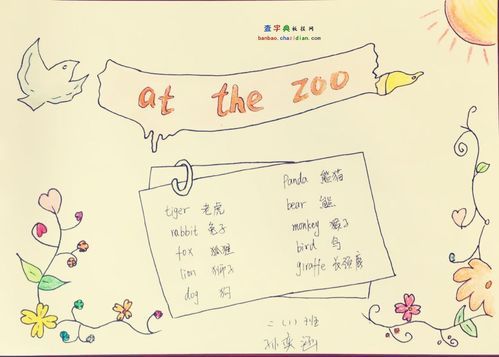 查字典板报网
banbao.chazidian.com
at the zoo
tiger 老虎
rabbit 兔子
fox 狐狸
lion 狮子
dog 狗
Panda 熊猫
bear 熊
monkey 猴子
bird 鸟
giraffe 长颈鹿
二（1）班
孙